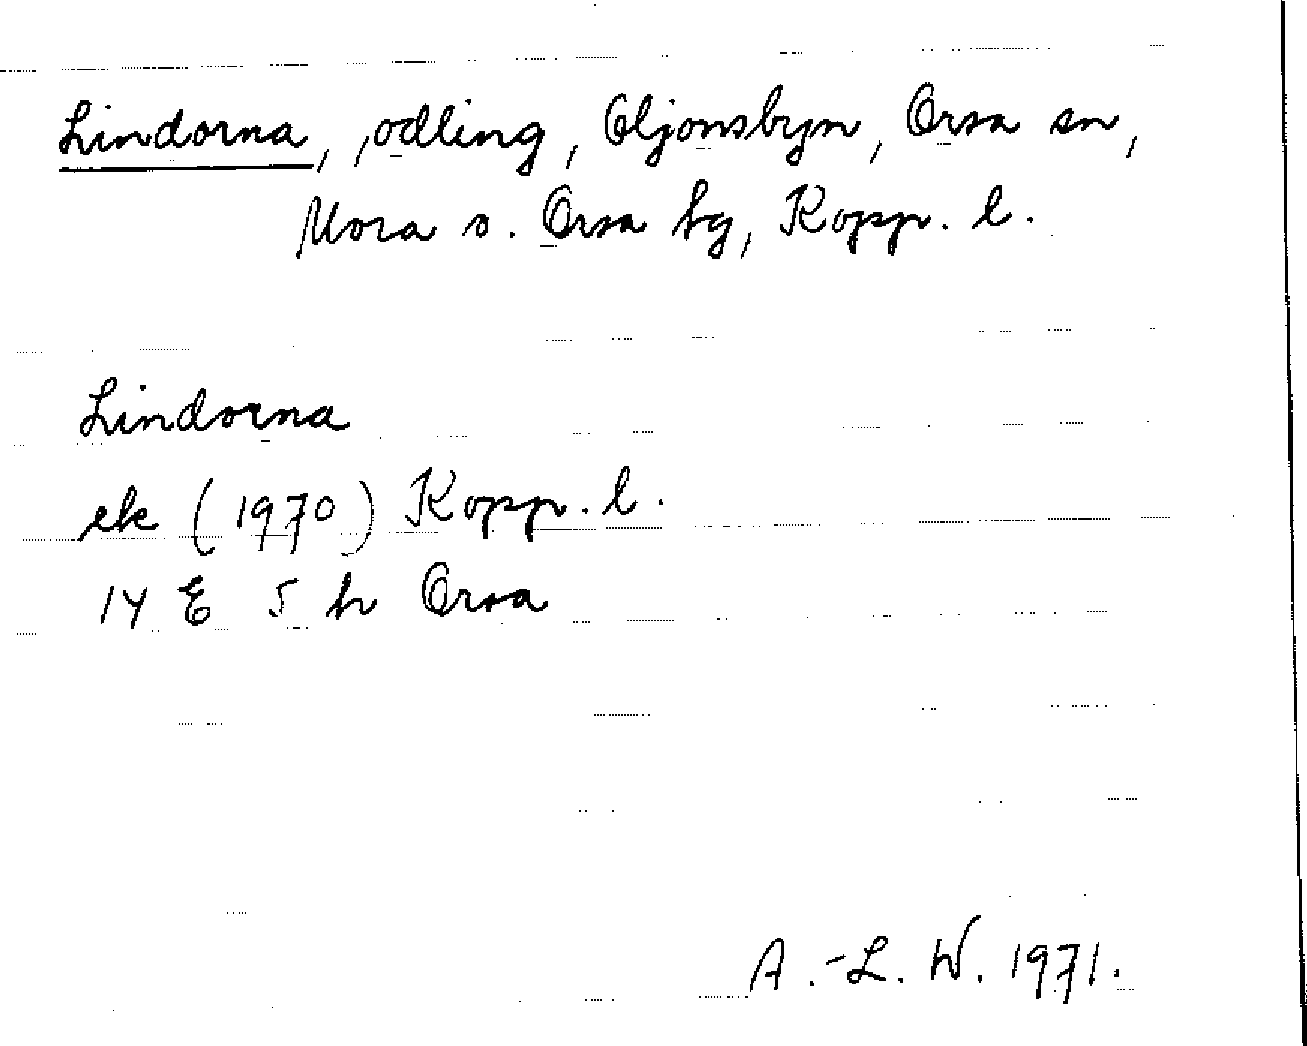 Lindorna, odling, Oljonsbyn, Orsa sn,
Mora o. Orsa tg, Kopp. l.
Lindorna
ek (1970) Kopp. l.
14 E 5 h Orsa
A.-L. W. 1971.